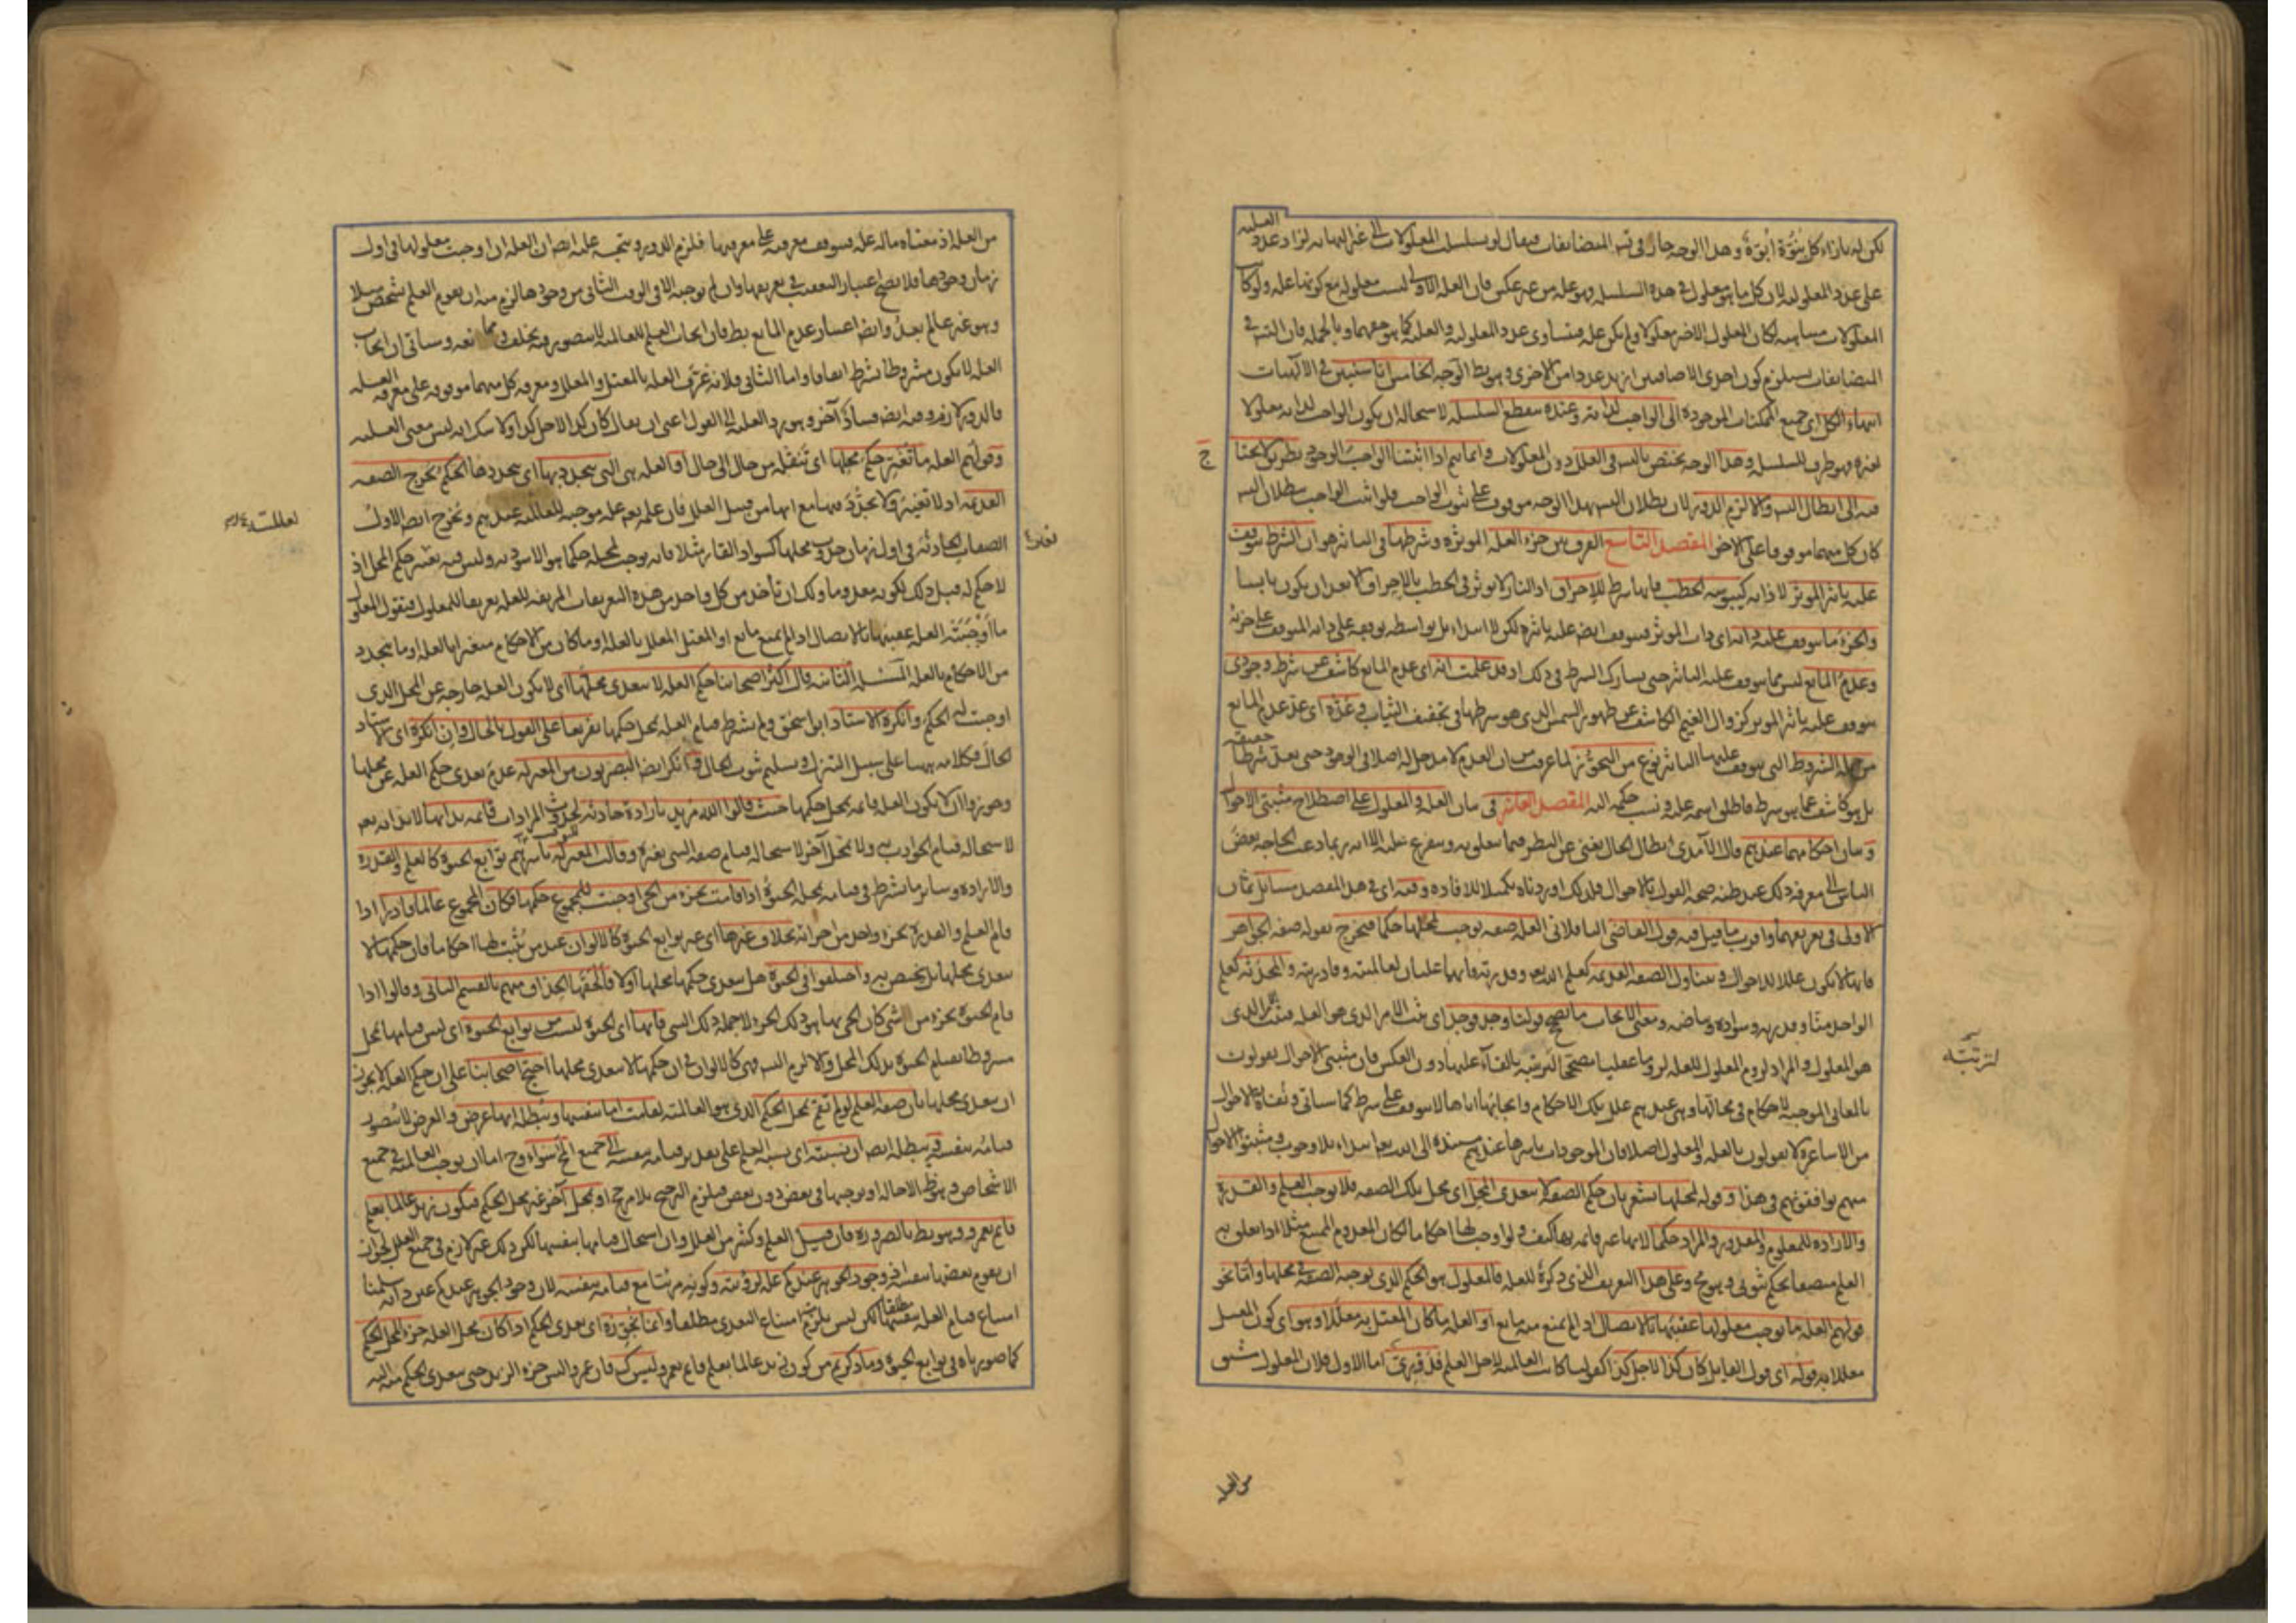 لكن له بازاء كل بنوّة ابوّة وهذا الوجه جار في تس المتضايفات فيقال لو تسلسلت المعلولات الى غير النهايه لزاد عدد العليه
على عدد المعلوليه لان كل ما هو معلول في هذه السلسله فهو عله من غير عكس فان العله الاولى ليست معلوله مع كونها عله ولو كانت
المعلولات متناهيه لكان المعلول الاخير معلولا ولم يكن عله فتساوى عدد المعلوليه والعليه كما هو حقهما وبالجمله فان التس في
المتضايفات يستلزم كون احدى الاضافتين ازيد عددا من الاخرى وهو بط الوجه الخامس انا سنبين في الالهيات
انتهاء الكل اى جميع الممكنات الموجودة الى الواجب لذاته وعنده تنقطع السلسله لاستحاله ان يكون الواجب لذاته معلولا
لغيره فهو طرف للسلسله وهذا الوجه يختص بالتس في العلل دون المعلولات وانما يتم اذا اثبتنا الواجب الوجود بطريق لا يحتاج
فيه الى ابطال التس والا لزم الدور لان بطلان التس بهذا الوجه موقوف على ثبوت الواجب فلو اثبت الواجب ببطلان التس
كان كل منهما موقوفا على الاخر المقصد التاسع الفرق بين جزء العله الموثرة وشرطها في التاثير هو ان الشرط يتوقف
عليه تاثير الموثر لا ذاته كيبوسه الحطب فانها شرط للاحراق اذ النار لا توثر في الحطب بالاحراق الا بعد ان يكون يابسا
والجزء ما يتوقف عليه ذاته اى ذات الموثر فيتوقف ايضا عليه تاثيره لكن لا ابتداء بل بواسطه توقفه على ذاته المتوقف على جزئه
وعدم المانع ليس مما يتوقف عليه التاثير حتى يشارك الشرط في ذلك اذ قد علمت انه اى عدم المانع كاشف عن شرط وجودى
يتوقف عليه تاثير الموثر كزوال الغيم الكاشف عن ظهور الشمس الذى هو شرطها في تجفيف الثياب وعدّه اى عدّ عدم المانع
من جمله الشروط التي يتوقف عليها التاثير نوع من التجوّز لما عرفت من ان العدم لا مدخل له اصلا في الوجود حتى يعد شرطا حقيقه
بل هو كاشف عما هو شرط فاطلق اسمه عليه ونسب حكمه اليه المقصد العاشر في بيان العله والمعلول على اصطلاح مثبتى الاحوال
وبيان احكامهما عندهم قال الآمدى ابطال الحال يغنى عن النظر فيما يتعلق به ويتفرع عليه الا انه ربما دعت الحاجه بعض
الناس الى معرفه ذلك عند ظنه صحه القول بالاحوال فلذلك اوردناه تكميلا للافاده وفيه اى في هذا المقصد مسائل ثمان
الاولى في تعريفهما واقرب ما قيل فيه قول القاضى الباقلانى العله صفه توجب لمحلها حكما فيخرج بقوله صفه الجواهر
فانها لا تكون عللا للاحوال ويتناول الصفه القديمه كعلم الله تعالى وقدرته فانهما علتان لعالميته وقادريته والمحدثه كعلم
الواحد منا وقدرته وسواده وبياضه ومعنى الايجاب ما يصحح قولنا وجد فوجد اى ثبت الامر الذى هو العله فثبت الامر الذى
هو المعلول والمراد لزوم المعلول للعله لزوما عقليا مصححا لترتبه بالفاء عليها دون العكس فان مثبتى الاحوال يقولون
بالمعانى الموجبه للاحكام في محالها وهى عندهم علل تلك الاحكام وايجابها اياها لا يتوقف على شرط كما سياتى ونفاة الاحوال
من الاشاعرة لا يقولون بالعله والمعلول اصلا فان الموجودات باسرها عندهم مستنده الى الله تعالى ابتداء بلا وجوب ومثبتوا الاحوال
منهم يوافقونهم في هذا وقوله لمحلها يشعر بان حكم الصفه لا يتعدى المحل اى محل تلك الصفه فلا يوجب العلم والقدرة
والاراده للمعلوم والمقدور والمراد حكما لانها غير قائمه بها كيف ولو اوجب لها احكاما لكان المعدوم الممتنع مثلا اذا تعلق به
العلم متصفا بحكم ثبوتى وهو مح وعلى هذا التعريف الذى ذكره للعله فالمعلول هو الحكم الذى توجبه الصفه في محلها واما نحو
قولهم العله ما توجب معلولها عقيبها بالاتصال اذا لم يمنع منه مانع او العله ما كان المعتل به معللا وهو اى كون المعتل
معللا به قوله اى قول القايل كان كذا لاجل كذا كقولنا كانت العالميه لاجل العلم فدورى اما الاول فلان المعلول مشتق
لترتبه
من العله
من العله اذ معناه ما له عله فتتوقف معرفته على معرفتها فيلزم الدور ويتجه عليه ايضا ان العله ان اوجبت معلولها في اول
زمان وجودها فلا يصح اعتبار التعقب في تعريفها وان لم توجبه الا في الوقت الثانى من وجودها لزم منه ان يقوم العلم بشخص مثلا
وهو غير عالم بعد وايضا اعتبار عدم المانع بط فان ايجاب العلم للعالميه لا يتصور فيه تخلف وممانعه وسياتى ان ايجاب
العله لا يكون مشروطا بشرط اتفاقا واما الثانى فلانه عرّف العله بالمعتل والمعلل ومعرفه كل منهما موقوفه على معرفه العله
فالدور لازم وفيه ايضا فساد آخر وهو رد العله الى القول اعنى ان يقال كان كذا لاجل كذا ولا شك انه ليس معنى العليه
وقولهم العله ما تغيّر حكم محلها اى تنقله من حال الى حال او العله هى التي يتجدد بها اى بتجددها الحكم يخرج الصفه
القديمه اذ لا تغيّر ولا تجدّد فيها مع انها من قبيل العلل فان علمه تعم عله موجبه للعالميه عندهم ويخرج ايضا الاول
الصفات الحادثه في اول زمان حدوث محلها كسواد القار مثلا فانه يوجب لمحله حكما هو الاسوديه وليس فيه تغير حكم المحل اذ
لا حكم له قبل ذلك لكونه معدوما ولك ان تأخذ من كل واحد من هذه التعريفات المزيفه للعله تعريفا للمعلول فتقول المعلول
ما أوجبته العله عقيبها بالاتصال اذا لم يمنع مانع او المعتل المعلل بالعله او ما كان من الاحكام متغيرا بالعله او ما يتجدد
من الاحكام بالعله المسئله الثانيه قال اكثر اصحابنا حكم العله لا يتعدى محلها اى لا يكون العله خارجه عن المحل الذى
اوجبت له الحكم وانكره الاستاد ابو اسحق ولم يشترط قيام العله بمحل حكمها تفريعا على القول بالحال وان انكره اى الاستاد
الحال فكلامه ههنا على سبيل التنزل وتسليم ثبوت الحال وانكر ايضا البصريون من المعتزله عدم تعدى حكم العله عن محلها
وجوزوا ان لا يكون العله قائمه بمحل حكمها حيث قالوا الله مريد بارادة حادثه لحدوث المرادات قائمه بذاتها لا بذاته تعم
لاستحاله قيام الحوادث به ولا بمحل آخر لاستحاله قيام صفه الشى بغيره وقالت المعتزله باسرهم توابع الحيوة كالعلم والقدرة
والارادة وسائر ما شرط في قيامه بمحله الحيوة اذا قامت بجزء من الحى اوجبت للمجموع حكمها فكان المجموع عالما قادرا اذا
قام العلم والقدرة بجزء واحد من اجزائه بخلاف غيرها اى غير توابع الحيوة كالالوان عند من يثبت لها احكاما فان حكمها لا
يتعدى محلها بل يختص به واختلفوا في الحيوة هل يتعدى حكمها محلها اولا فالحقها الحذاق منهم بالقسم الثانى وقالوا اذا
قام الحيوة بجزء من شى كان الحى بها هو ذلك الجزء لا جمله ذلك الشى فانها اى الحيوة ليست من توابع الحيوة اى ليس قيامها بمحل
مشروطا بقيام الحيوة بذلك المحل والا لزم التس فهى كالالوان في ان حكمها لا يتعدى محلها احتج اصحابنا على ان حكم العله لا يجوز
ان يتعدى محلها بان صفه العلم لو لم تقم بمحل الحكم الذى هو العالميه لقامت اما بنفسها ويبطله انها عرض والعرض لا يتصور
قيامه بنفسه ويبطله ايضا ان نسبته اى نسبه العلم على تقدير قيامه بنفسه الى جميع المحال سواء وح اما ان يوجب العالميه في جميع
الاشخاص وهو ظ الاحاله او يوجبها في بعض دون بعض فيلزم الترجيح بلا مرجح او بمحل آخر غير محل الحكم فيكون زيد عالما بعلم
قائم بعمرو وهو بط بالضرورة فان قيل العلم وكثير من العلل وان استحال قيامها بنفسها لكن ذلك غير لازم في جميع العلل لجواز
ان يقوم بعضها بنفسه اذ وجود الجوهر عندكم عله لرؤيته وكونه مرئيا مع قيامه بنفسه لان وجود الجوهر عندكم عين ذاته سلمنا
امتناع قيام العله بنفسها مطلقا لكن ليس يلزم منه امتناع التعدى مطلقا وانما نجوّزه اى تعدى الحكم اذا كان محل العله جزء المحل الحكم
كما صورناه في توابع الحيوة وما ذكرتم من كون زيد عالما بعلم قائم بعمرو ليس كك فان عمروا ليس جزء الزيد حتى يتعدى الحكم منه اليه